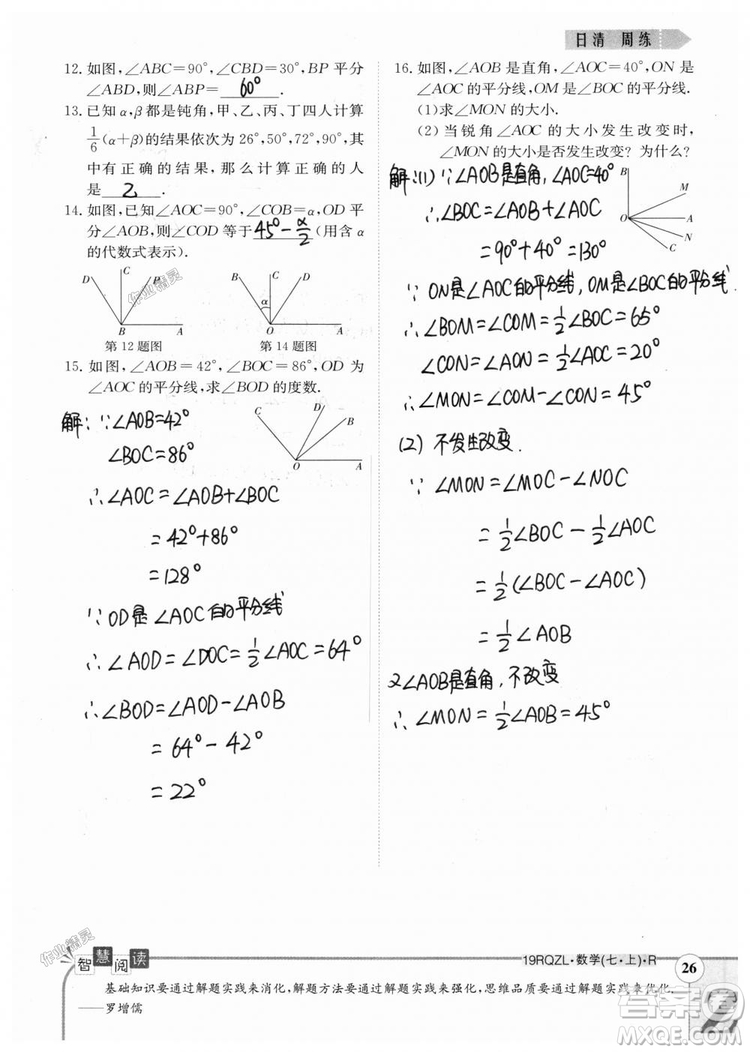 日清 周练
12. 如图,∠ABC=90°,∠CBD=30°,BP 平分
∠ABD,则∠ABP= 60° .
13. 已知 α,β 都是钝角,甲、乙、丙、丁四人计算
1/6(α+β)的结果依次为 26°,50°,72°,90°,其
中有正确的结果,那么计算正确的人
是 乙 .
14. 如图,已知∠AOC=90°,∠COB=α,OD 平
分∠AOB,则∠COD 等于 45°-α/2 (用含 α
的代数式表示).
D C P B A
第 12 题图
B C D α O A
第 14 题图
15. 如图,∠AOB=42°,∠BOC=86°,OD 为
∠AOC 的平分线,求∠BOD 的度数.
C D B O A
解:∵∠AOB=42°
∠BOC=86°
∴∠AOC=∠AOB+∠BOC
=42°+86°
=128°
∵OD是∠AOC的平分线
∴∠AOD=∠DOC=1/2∠AOC=64°
∴∠BOD=∠AOD-∠AOB
=64°-42°
=22°
16. 如图,∠AOB 是直角,∠AOC=40°,ON 是
∠AOC 的平分线,OM 是∠BOC 的平分线.
(1)求∠MON 的大小.
(2)当锐角∠AOC 的大小发生改变时,
∠MON 的大小是否发生改变?为什么?
B M A N C O
解:(1)∵∠AOB是直角,∠AOC=40°
∴∠BOC=∠AOB+∠AOC
=90°+40°=130°
∵ON是∠AOC的平分线,OM是∠BOC的平分线.
∴∠BOM=∠COM=1/2∠BOC=65°
∠CON=∠AON=1/2∠AOC=20°
∴∠MON=∠COM-∠CON=45°
(2)不发生改变.
∵∠MON=∠MOC-∠NOC
=1/2∠BOC-1/2∠AOC
=1/2(∠BOC-∠AOC)
=1/2∠AOB
又∠AOB是直角,不改变
∴∠MON=1/2∠AOB=45°
作业精灵
作业精灵
智慧阅读
19RQZL·数学(七·上)·R
26
基础知识要通过解题实践来消化,解题方法要通过解题实践来强化,思维品质要通过解题实践来优化.
——罗增儒